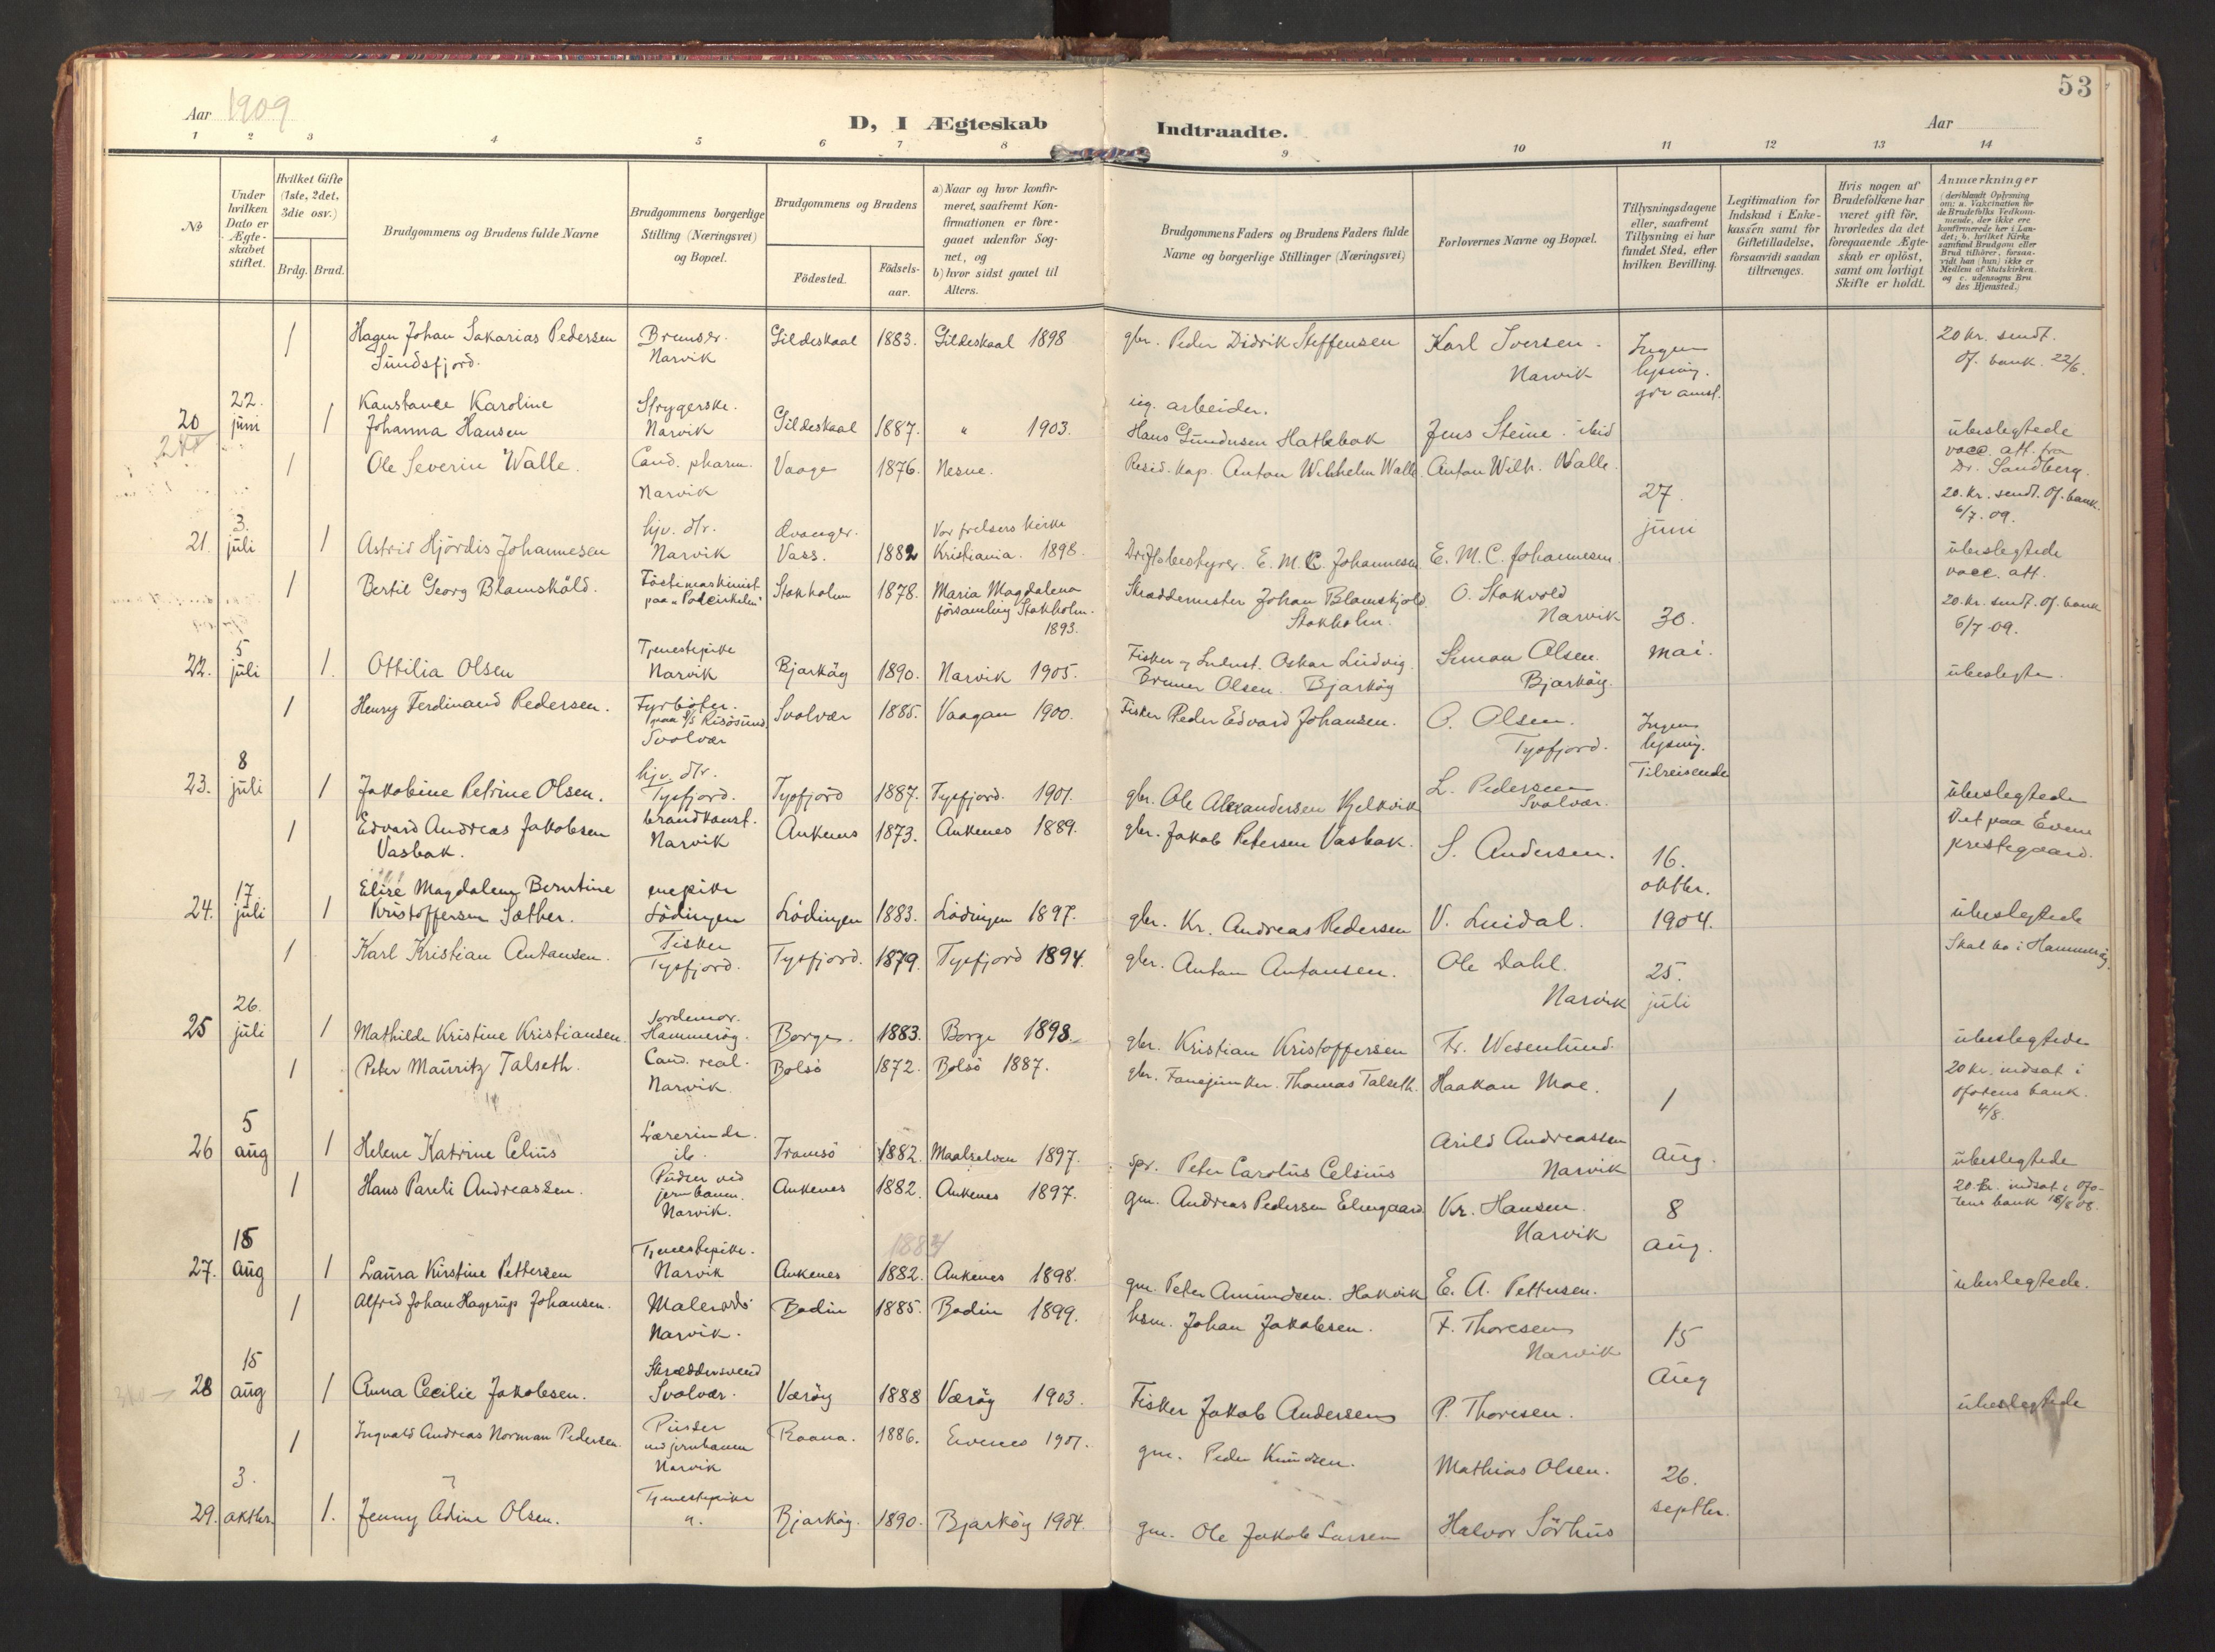 53
Aar 1909
D, I Ægteskab Indtraadte.
Aar
1 2 3 4 5 6 7 8 9 10 11 12 13 14
№
Under hvilken Dato er Ægteskabet stiftet.
Hvilket Gifte (1ste, 2det, 3die osv.)
Brdg. Brud.
Brudgommens og Brudens fulde Navne
Brudgommens borgerlige Stilling (Næringsvei) og Bopæl.
Brudgommens og Brudens
Fødested.
Fødselsaar.
a) Naar og hvor konfirmeret, saafremt Konfirmationen er foregaaet udenfor Sognet, og
b) hvor sidst gaaet til Alters.
Brudgommens Faders og Brudens Faders fulde Navne og borgerlige Stillinger (Næringsvei)
Forlovernes Navne og Bopæl.
Tillysningsdagene eller, saafremt Tillysning ei har fundet Sted, efter hvilken Bevilling.
Legitimation for Indskud i Enkekassen samt for Giftetilladelse, forsaavidt saadan tiltrænges.
Hvis nogen af Brudefolkene har været gift før, hvorledes da det foregaaende Ægteskab er opløst, samt om lovligt Skifte er holdt.
Anmærkninger (deriblandt Oplysning om: a. Vakcination for de Brudefolks Vedkommende, der ikke ere konfirmerede her i Landet; b. hvilket Kirkesamfund Brudgom eller Brud tilhører, forsaavidt han (hun) ikke er Medlem af Statskirken, og c. udensogns Brudes Hjemsted.)
1 Hagen Johan Sakarias Pedersen Bremser. Gildeskaal 1883. Gildeskaal 1898 gbr. Peder Didrik Steffensen Karl Iversen. Ingen 20 kr. sendt.
Sundsfjord. Narvik Narvik lysning. Of. bank. 22/6.
22. Konstance Karoline Strygerske. arbeider.
20 juni 1 Johanna Hansen Narvik Gildeskaal 1887. " 1903. Hans Hatbak Jens Steine. ibid ubeslegtede
1 Ole Severin Walle. Cand. pharm. Vaage 1876. Nesne. Resid. kap. Anton Wilhelm Walle Anton Wilh. Walle. vacc. att. fra
Narvik 27 Dr. Sandberg.
20. kr. sendt. Of. bank
6/7. 09.
3. hjv. dtr. Vor frelsers kirke juni
21. juli 1 Astrid Hjördis Johannesen Narvik Vass. 1882 Kristiania. 1898. Driftsbestyrer. E. M. C. Johannesen E. M. C. Johannesen. ubeslegtede
vacc. att.
1 Bertil Georg Blamsköld. Stokholm 1878. Maria Magdalena Skræddermester Johan Blamskjold O. Stokvold 20. kr. sendt. Of. bank
församling Stokholm. Stokholm. Narvik 30. 6/7 09.
1893.
5 Tjenestepike mai.
22. juli 1. Ottilia Olsen Narvik Bjarköy 1890. Narvik 1905. Fisker og Oskar Ludvig Simon Olsen. ubeslegte.
Olsen. Bjarköy Bjarköy.
1 Henry Ferdinand Pedersen. Fyrböter. Svolvær 1885. Vaagan 1900. Fisker Peder Edvard Johansen. O. Olsen. Ingen
paa Svolvær Tysfjord. lysning.
8 hjv. dtr. Tilreisende
23. juli 1 Jakobine Petrine Olsen. Tysfjord. Tysfjord 1887. Tysfjord. 1901. gbr. Ole Alexandersen Kjelkvik L. Pedersen ubeslegtede
Svolvær.
1 Edvard Andreas Jakobsen brandkonst. Ankenes 1873. Ankenes 1889. gbr. Jakob Petersen Vasbak. S. Andersen. 16. Viet paa Evenes
Vasbak. Narvik oktbr. prestegaard.
17. Elise Magdalene Berntine enepike
24. juli 1 Kristoffersen Sæther. Lödingen Lödingen 1883. Lödingen 1897. gbr. Kr. Andreas Pedersen V. Lindal. 1904. ubeslegtede
1 Karl Kristian Antonsen. Fisker Tysfjord. 1879. Tysfjord 1894. gbr. Anton Antonsen. Ole Dahl. 25. Skal bo i Hammeröy.
Tysfjord. Narvik juli
26. Jordemor.
25 juli 1 Mathilde Kristine Kristiansen. Hammeröy. Borge. 1883. Borge 1898. gbr. Kristian Kristoffersen Fr. Wesenlund. ubeslegtede
1 Peter Mauritz Talseth. Cand. real. Bolsö 1872. Bolsö 1887. gbr. Fanejunker. Thomas Talseth. Haakon Moe. 1 20 kr. indsat i
Narvik. Ofotens bank.
4/8.
5 Lærerinde. Arild Andreassen aug.
26 aug 1 Helene Katrine Celius ib. Tromsö 1882. Maalselven 1897. Spr. Peter Carolus Celsius Narvik ubeslegtede
1 Hans Pareli Andreassen. Pudser ved Ankenes 1882. Ankenes 1897. gm. Andreas Pedersen Elvegaard Kr. Hansen. 8 20 kr. indsat i Ofo-
jernbanen. Narvik. Narvik aug. tens bank 18/8 08.
15 Tjenestepike. 1884
27. aug 1 Laura Kirstine Pettersen Narvik Ankenes 1882. Ankenes 1898. gm. Peter Amundsen. Hakvik E. A. Pettersen. ubeslegtede.
1 Alfred Johan Hagerup Johansen. Bodin 1885. Bodin 1899. hsm. Johan Jakobsen. F. Thoresen 15
Narvik. Narvik aug
15 Skræddersvend
28 aug 1 Anna Cecilie Jakobsen. Svolvær. Værøy 1888 Værøy 1903. Fisker Jakob Andersen P. Thoresen. ubeslegtede
1 Ingvald Andreas Norman Pedersen. Pudser Raana. 1886. Evenes 1901. gm. Peder Knudsen. Mathias Olsen. 26.
ved jernbanen Narvik septbr.
3. Tjenestepike
29. oktbr. 1. Jenny Adine Olsen. ". Bjarköy. 1890. Bjarköy 1904. gm. Ole Jakob Larsen Halvor Sörhus